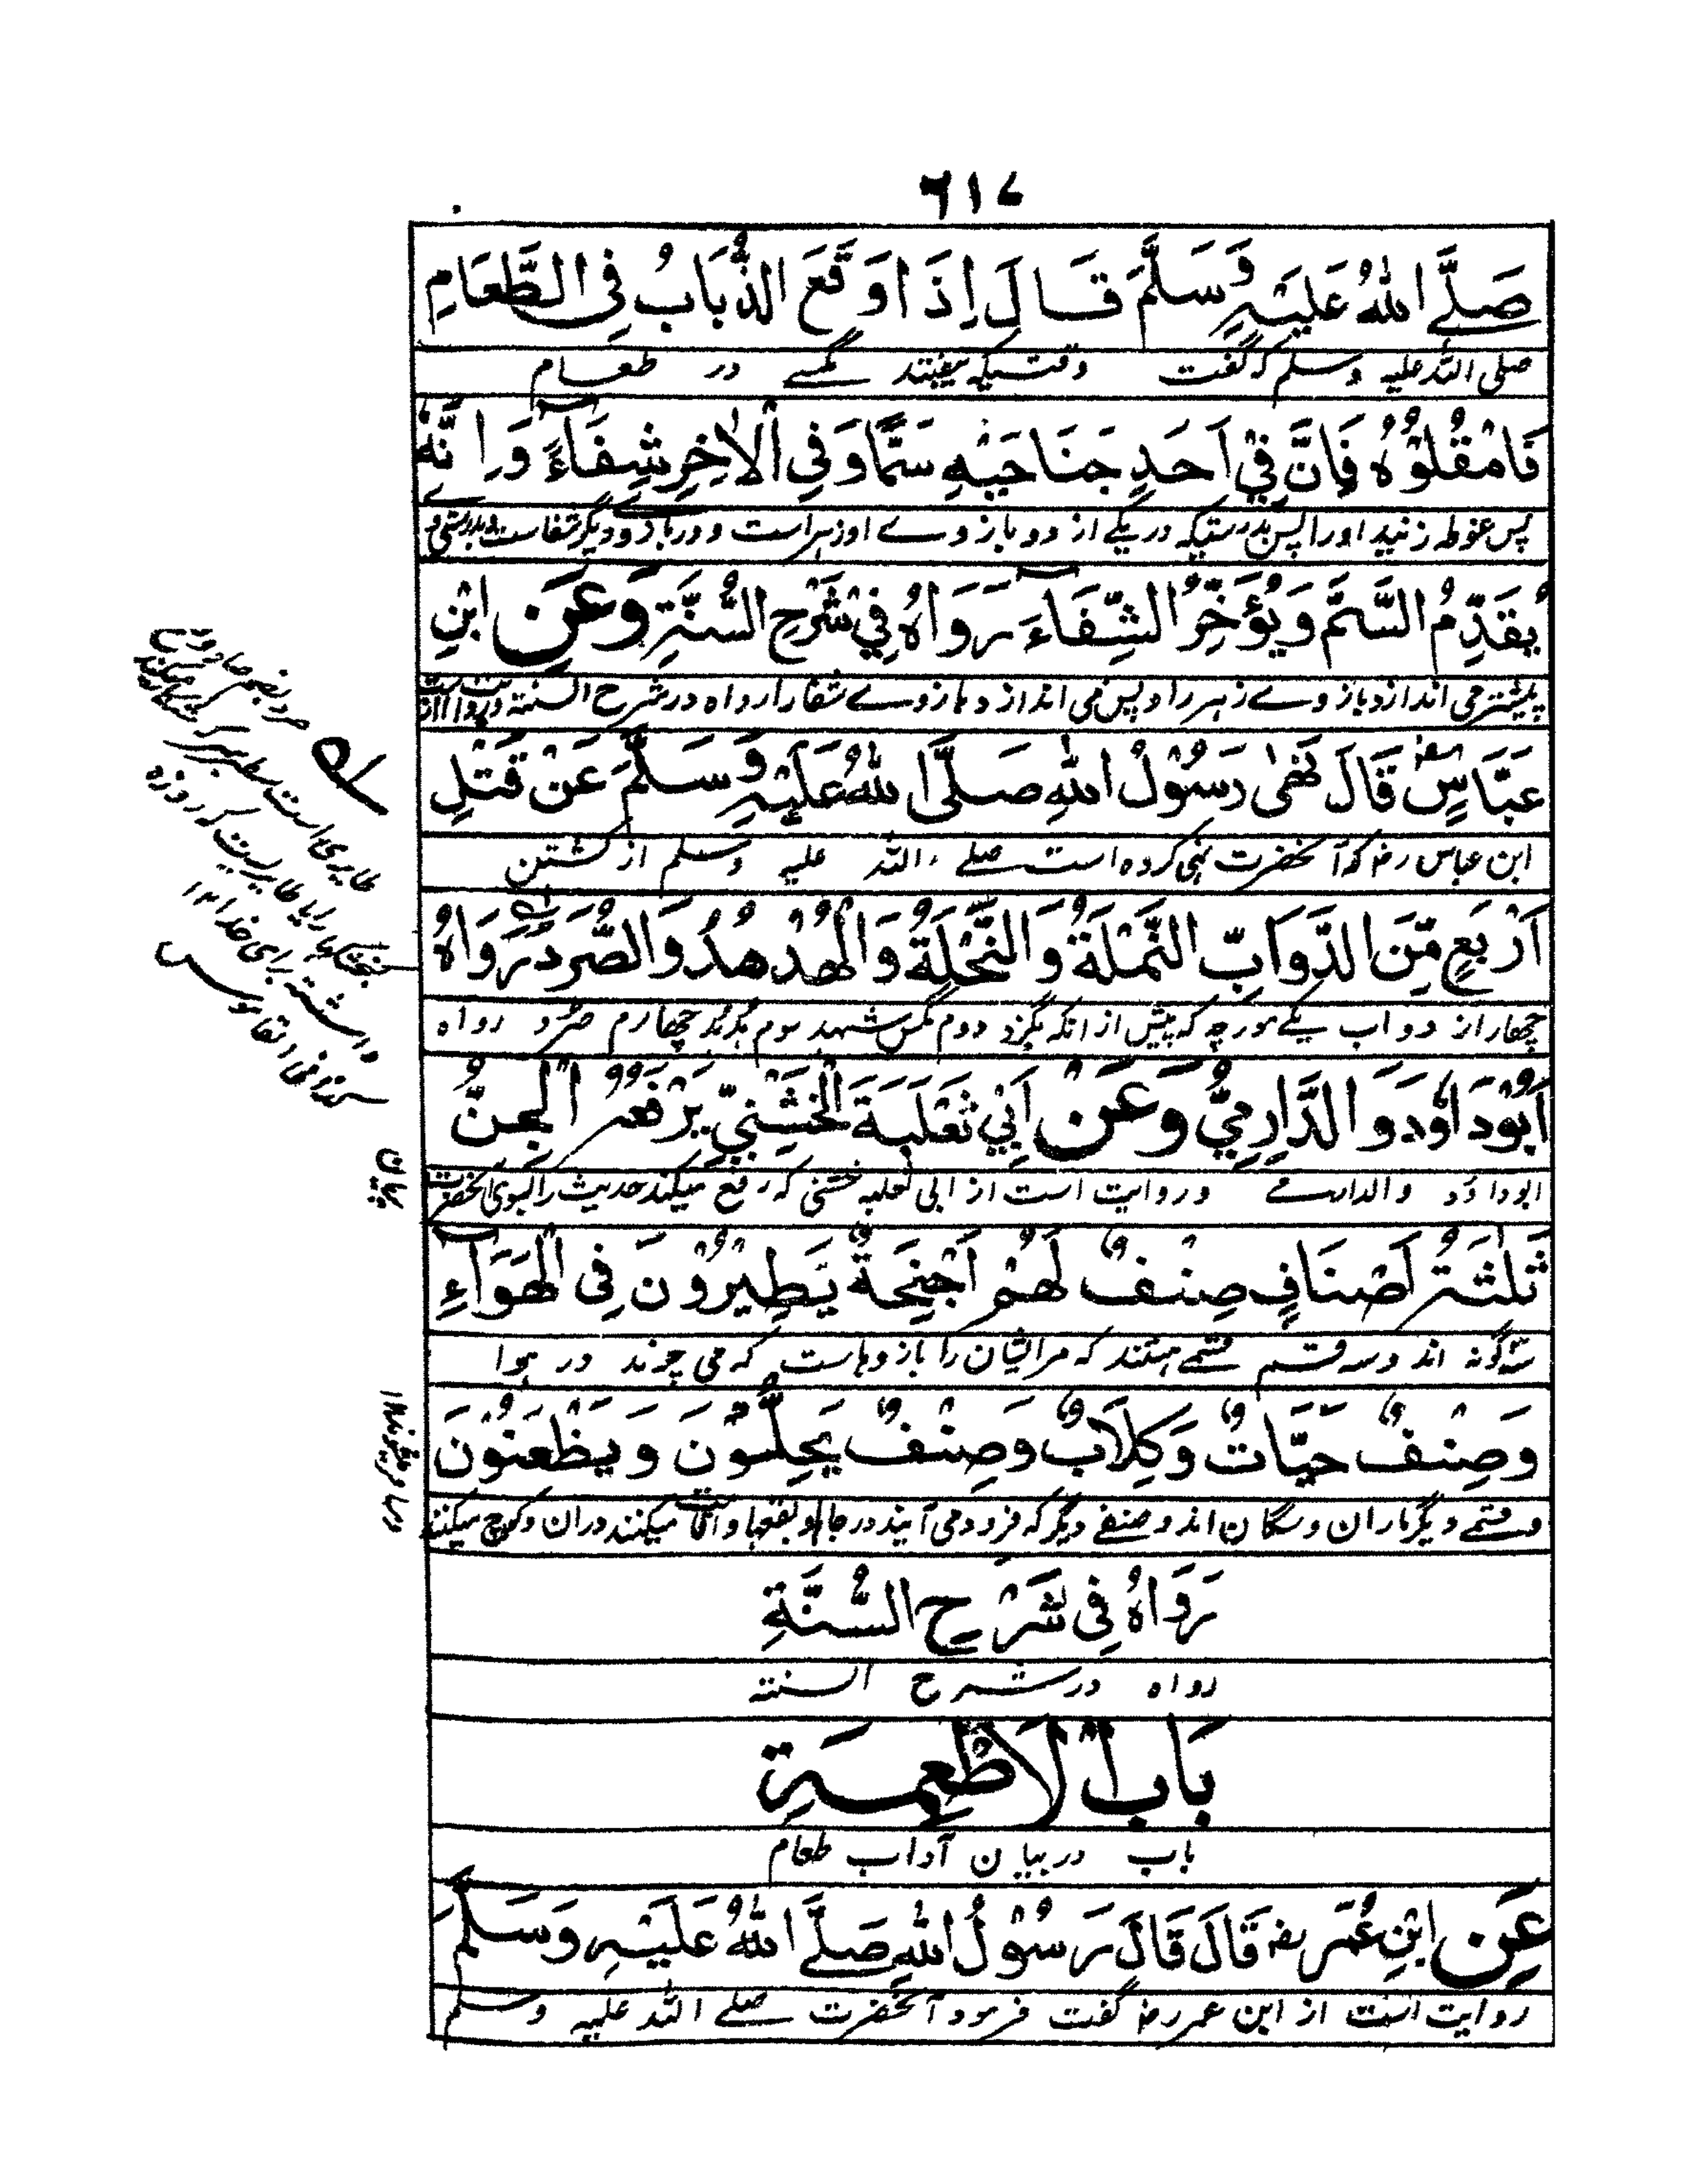 ٦١٧
صَلَّے اللهُ عَلَيْهِ وَسَلَّمَ قَالَ اِذَا وَقَعَ الذُّبَابُ فِی الطَّعَامِ
صلی الله علیه وسلم که گفت وقتیکه بیفتند مگسے در طعام
فَامْقُلُوْهُ فَاِنَّ فِيْ اَحَدِ جَنَاحَيْهِ سَمًّا وَفِي الْاٰخِرِ شِفَآءً وَاِنَّهٗ
پس غوطه زنید اورا پس بدرستیکه در یکے از دو بازوے او زهر است و در بازوے دیگر شفاست و بدرستی
يُقَدِّمُ السَّمَّ وَيُؤَخِّرُ الشِّفَآءَ رَوَاهُ فِيْ شَرْحِ السُّنَّةِ وَعَنِ ابْنِ
پیشتر می اندازد بازوے زهر را و پس می اندازد بازوے شفا را رواه در شرح السنته
عَبَّاسٍ رض قَالَ نَهٰی رَسُوْلُ اللهِ صَلَّی اللهُ عَلَيْهِ وَسَلَّمَ عَنْ قَتْلِ
ابن عباس رض که آنحضرت نهی کرده است صلے الله علیه وسلم از کشتن
اَرْبَعٍ مِّنَ الدَّوَابِّ النَّمْلَةُ وَالنَّحْلَةُ وَالْهُدْهُدُ وَالصُّرَدُ رَوَاهُ
چهار از دواب یکے مورچه که پیش از انکه بگزد دوم مگس شهد سوم هدهد چهارم صرد رواه
اَبُوْدَاوٗدَ وَالدَّارِمِيُّ وَعَنْ اَبِيْ ثَعْلَبَةَ الْخُشَنِيِّ يَرْفَعُهُ اَلْجِنُّ
ابوداؤد والدارمے و روایت است از ابی ثعلبه خشنی که رفع میکند حدیث را بسوی آنحضرت
ثَلٰثَةُ اَصْنَافٍ صِنْفٌ لَهُمْ اَجْنِحَةٌ يَّطِيْرُوْنَ فِی الْهَوَآءِ
سه گونه اند و سه قسم قسمے هستند که مر ایشان را بازوهاست که می پرند در هوا
وَصِنْفٌ حَيَّاتٌ وَكِلَابٌ وَصِنْفٌ يَحِلُّوْنَ وَيَظْعَنُوْنَ
و قسمے دیگر ماران و سگان اند و صنفے دیگر که فرود می آیند در جاها و بقعها و اقامت میکنند دران و کوچ میکنند
رَوَاهُ فِی شَرْحِ السُّنَّةِ
رواه در شرح السنته
بَابُ الْاَطْعِمَةِ
باب در بیان آداب طعام
عَنِ ابْنِ عُمَرَ رض قَالَ قَالَ رَسُوْلُ اللهِ صَلَّے اللهُ عَلَيْهِ وَسَلَّمَ
روایت است از ابن عمر رض گفت فرمود آنحضرت صلے الله علیه وسلم